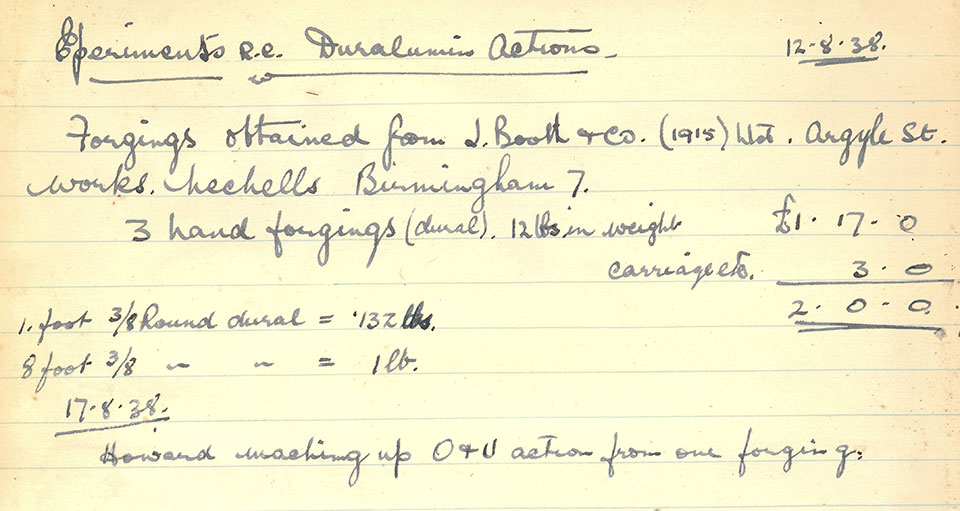 Eperiments R.e. Duralumin Actions. 12-8-38.
Forgings obtained from J. Booth & Co. (1915) Ltd. Argyle St.
works. Nechells Birmingham 7.
3 hand forgings (dural). 12 lbs in weight £1. 17. 0
carriage etc. 3. 0
2. 0. 0.
1. foot 3/8 Round dural = .132 lbs.
8 foot 3/8 " " = 1 lb.
17.8.38.
Howard maching up O & U action from one forging.